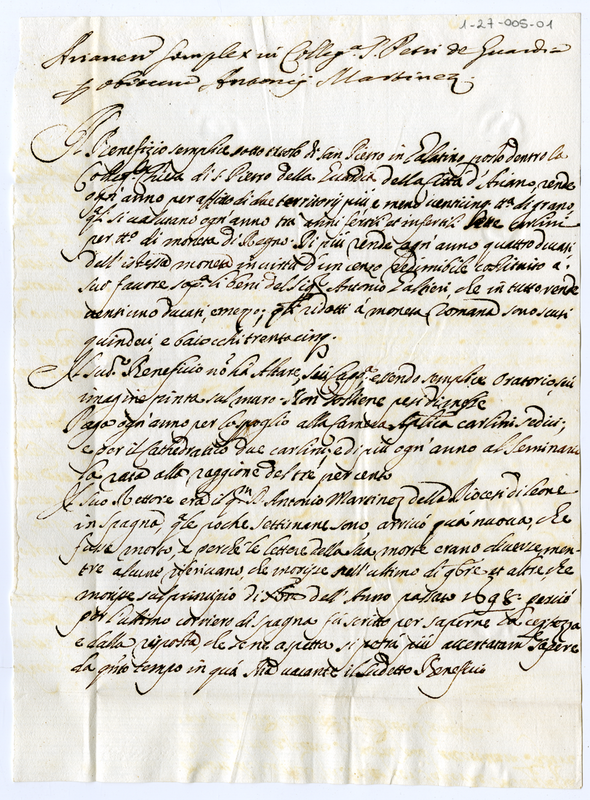 1-27-005-01
Arianen' Simplex in Colleg.ta S. Petri de Guardia
p obitum Antonij Martinez.
Il Benefizio semplice sotto titolo di San Pietro in Palatino posto dentro la
Colleg.ta Chiesa di S. Pietro della Guardia della Città d'Ariano, rende
ogn'anno per affitto di due territorij più e meno venticinq tt.a di grano,
q.li si valutano ogn'anno tra anni fertili et infertili sette carlini
per tt.o di moneta di Regno. Di più rende ogn'anno quattro ducati
dell'istessa moneta in virtù d'un censo redimibile costituito à
suo favore sop.a li beni del Sig.r Antonio che in tutto rende
ventiuno ducati, e mezzo; q.li ridotti à moneta Romana sono scuti
quindeci e baiocchi trentacinq.
Il sud.o Beneficio nō hà Altare, essendo semplice Oratorio, sui
imagine pinta sul muro. Non tostiene pesi di
Paga ogn'anno per lo spoglio alla Camera Aplica carlini sedici;
e per il Cathedratico due carlini; e di più ogn'anno al Seminario
la rata alla raggione del trè per cento
Il suo Rettore era il q.m D. Antonio Martinez della Diocesi di Leone
in Spagna, q.le poche settimane sono arrivò quà nuova, che
fusse morto, e perche le lettere della sua morte erano diverse, men-
tre alcune riferivano, che morisse nell'ultimo di 9bre et altre, che
morisse sul principio di Xbre dell'Anno passato 1698. perciò
per l'ultimo corriero di Spagna fù scritto per saperne la certezza
e dalla risposta che se ne aspetta si potrà più accertatam.te sapere
da q.nto tempo in quà stia vacante il sudetto Beneficio